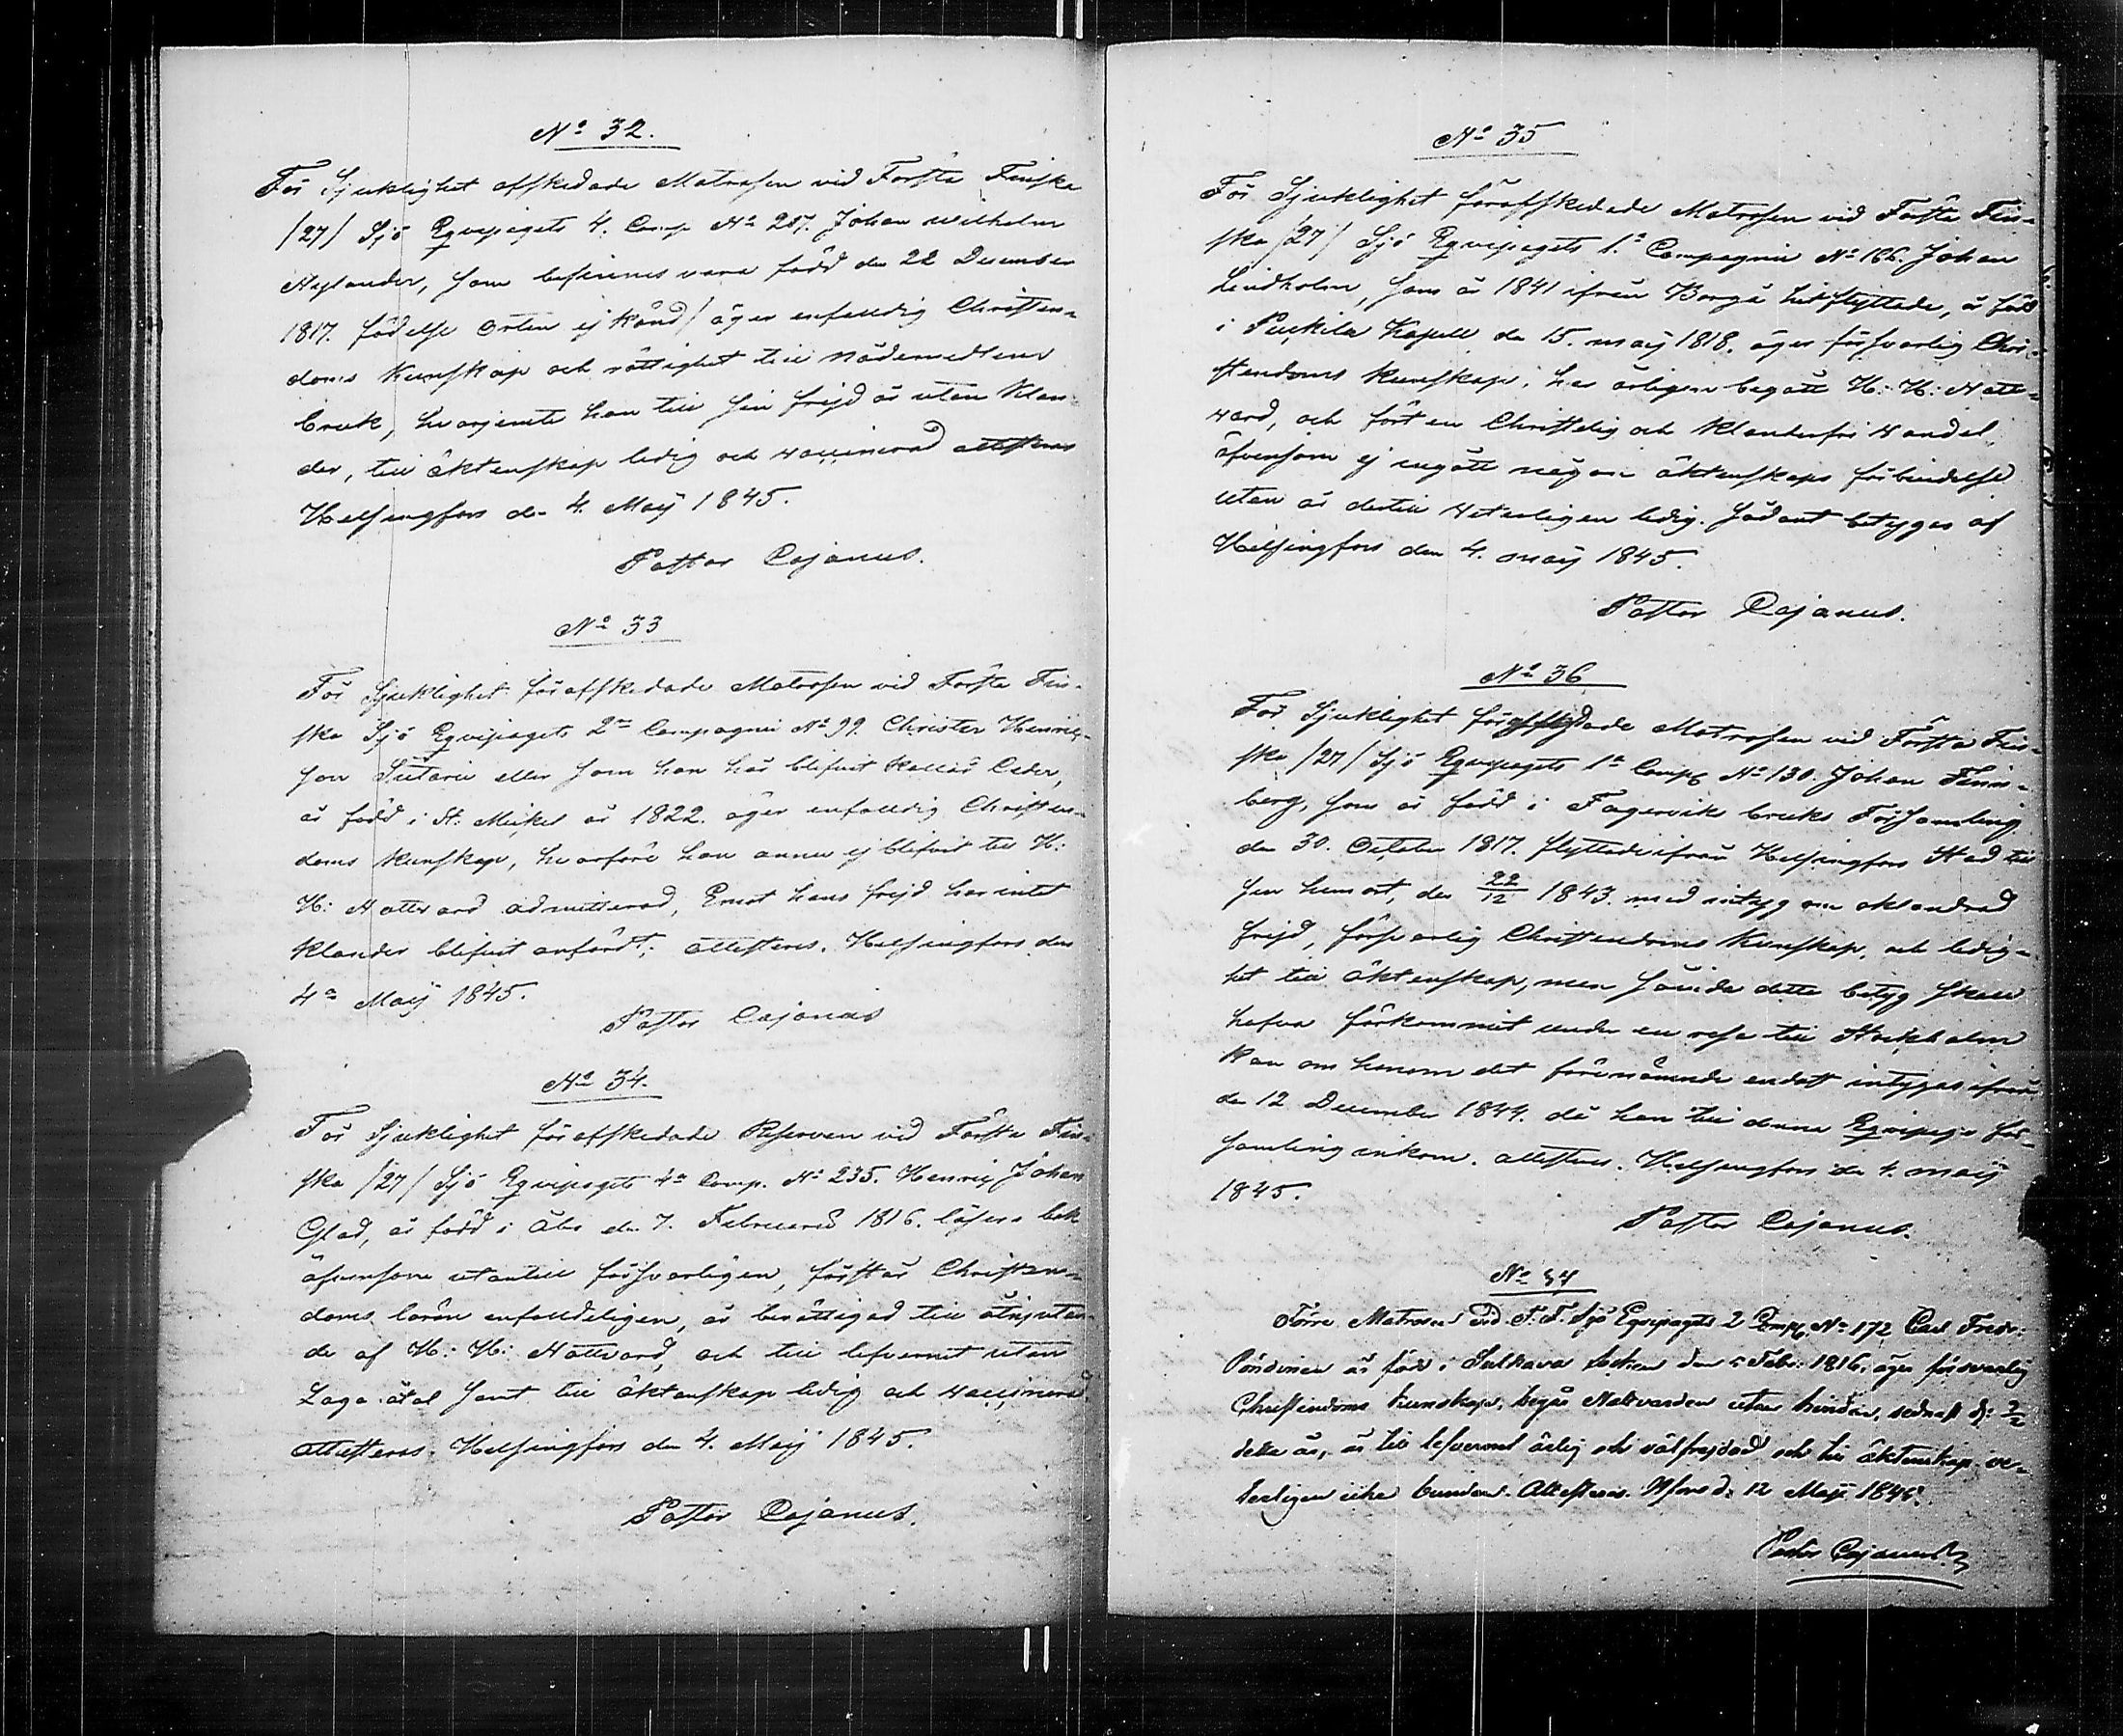 No 32.
För Sjuklighet afskedade Matrosen vid Första Finska
/27/ Sjö Eqvipagets 4. Comp No 207. Johan Wilhelm
Nylander, som befinnes vara född den 22 December
1817. födelse orten ej känd/ äger enfaldig Christen-
doms Kunskap och rättighet till Nådemedlens
bruk, hvarjemte han till sin frejd är utan Klan-
der, till äktenskap ledig och vaccinerad attesteras
Helsingfors den 4. Maij 1845.
Pastor Cajanus.
No 33
För Sjuklighet förafskedade Matrosen vid Första Fin-
ska Sjö Eqvipagets 2n Compagnie No 99. Christer Henric-
son Sutarie eller som han här blifvit kallad Ceder,
är född i St. Mickel år 1822. äger enfaldig Christen-
doms Kunskap, hvarföre han annu ej blifvit till H:
H: Nattvard admitterad, Emot hans frejd har intet
klander blifvit anfördt; attesteras. Helsingfors den
4n Maij 1845.
Pastor Cajanus
No 34.
För Sjuklighet förafskedade Reserven vid Första Fin-
ska /27/ Sjö Eqvipagets 4n Comp. No 235. Henric Johan
Glad, är född i Åbo den 7. Februarii 1816. läser i bok
äfvensom utantill försvarligen, förstår Christen-
doms läran enfaldeligen, är berättigad till åtnjutan-
de af H: H: Nattvard, och till lefvernet utan
Laga åtal samt till äktenskap ledig och vaccinerad
attesteras. Helsingfors den 4. Maij 1845.
Pastor Cajanus.
No 35
För Sjuklighet förafskedade Matrosen vid Första Fin-
ska /27/ Sjö Eqvipagets 1a Compagnie No 166. Johan
Lindholm, som år 1841 ifrån Borgå hitflyttade, är född
i Puckila Kapell den 15. maij 1818. äger försvarlig Chri-
stendoms kunskap, har årligen begått H: H: Natt-
vard, och fört en Christelig och klanderfri vandel
äfvensom ej ingått någon äktenskaps förbindelse
utan är dertill veterligen ledig. Sådant betygas af
Helsingfors den 4. maij 1845.
Pastor Cajanus.
No 36
För Sjuklighet förafskedade Matrosen vid Första Fin-
ska /27/ Sjö Eqvipagets 1a Comp No 130. Johan
berg, som är född i Fagervik bruks Församling
den 30. October 1817. flyttade ifrån Helsingfors Stad till
sin hemort, den 22/12 1843. med intyg om oklandrad
frejd, försvarlig Christendoms Kunskap, och ledig-
het till äktenskap, men sådan detta betyg skall
hafva förkommit under en resa till Stockholm
kan om honom det förenämnde endast intygas ifrån
den 12 December 1844. då han till denna Eqvipage för-
samling inkom. attesteras. Helsingfors den 4. maij
1845.
Pastor Cajanus.
No 37
Förre Matrosen vid F. F. Sjö Eqvipagets 2 Comp. No 172 Carl Fredr:
Pöndinen är född i Sulkava socken den 5 Febr: 1816, äger försvarlig
Christendoms kunskap, begår Nattvarden utan hinder, sednast d:
detta år, är till lefvernet ärlig och välfrejdad och till äktenskap ve-
terligen icke bunden. Attesteras. Hfors d. 12 Maji 1845.
Pastor Cajanus